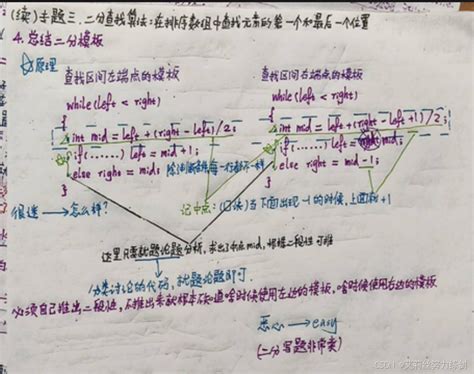 (续)主题三、二分查找算法:在排序数组中查找元素的第一个和最后一个位置
4.总结二分模板
原理
查找区间左端点的模板 查找区间右端点的模板
while(left < right) while(left < right)
{ {
int mid = left + (right - left)/2; int mid = left + (right - left + 1)/2;
if(......) left = mid + 1; if(......) left = mid;
else right = mid; else right = mid - 1;
} }
除 每一行都不一样
很迷 → 怎么样? 记中点: 当下面出现 -1 的时候,上面就 +1
这里只需就题论题分析,求出中点mid,根据二段性
分类讨论的代码,就题论题即可
必须自己推出二段性,不推出来就根本不知道啥时候使用左边的模板,啥时候使用右边的模板
恶心 → easy
(二分 题非常爽)
CSDN